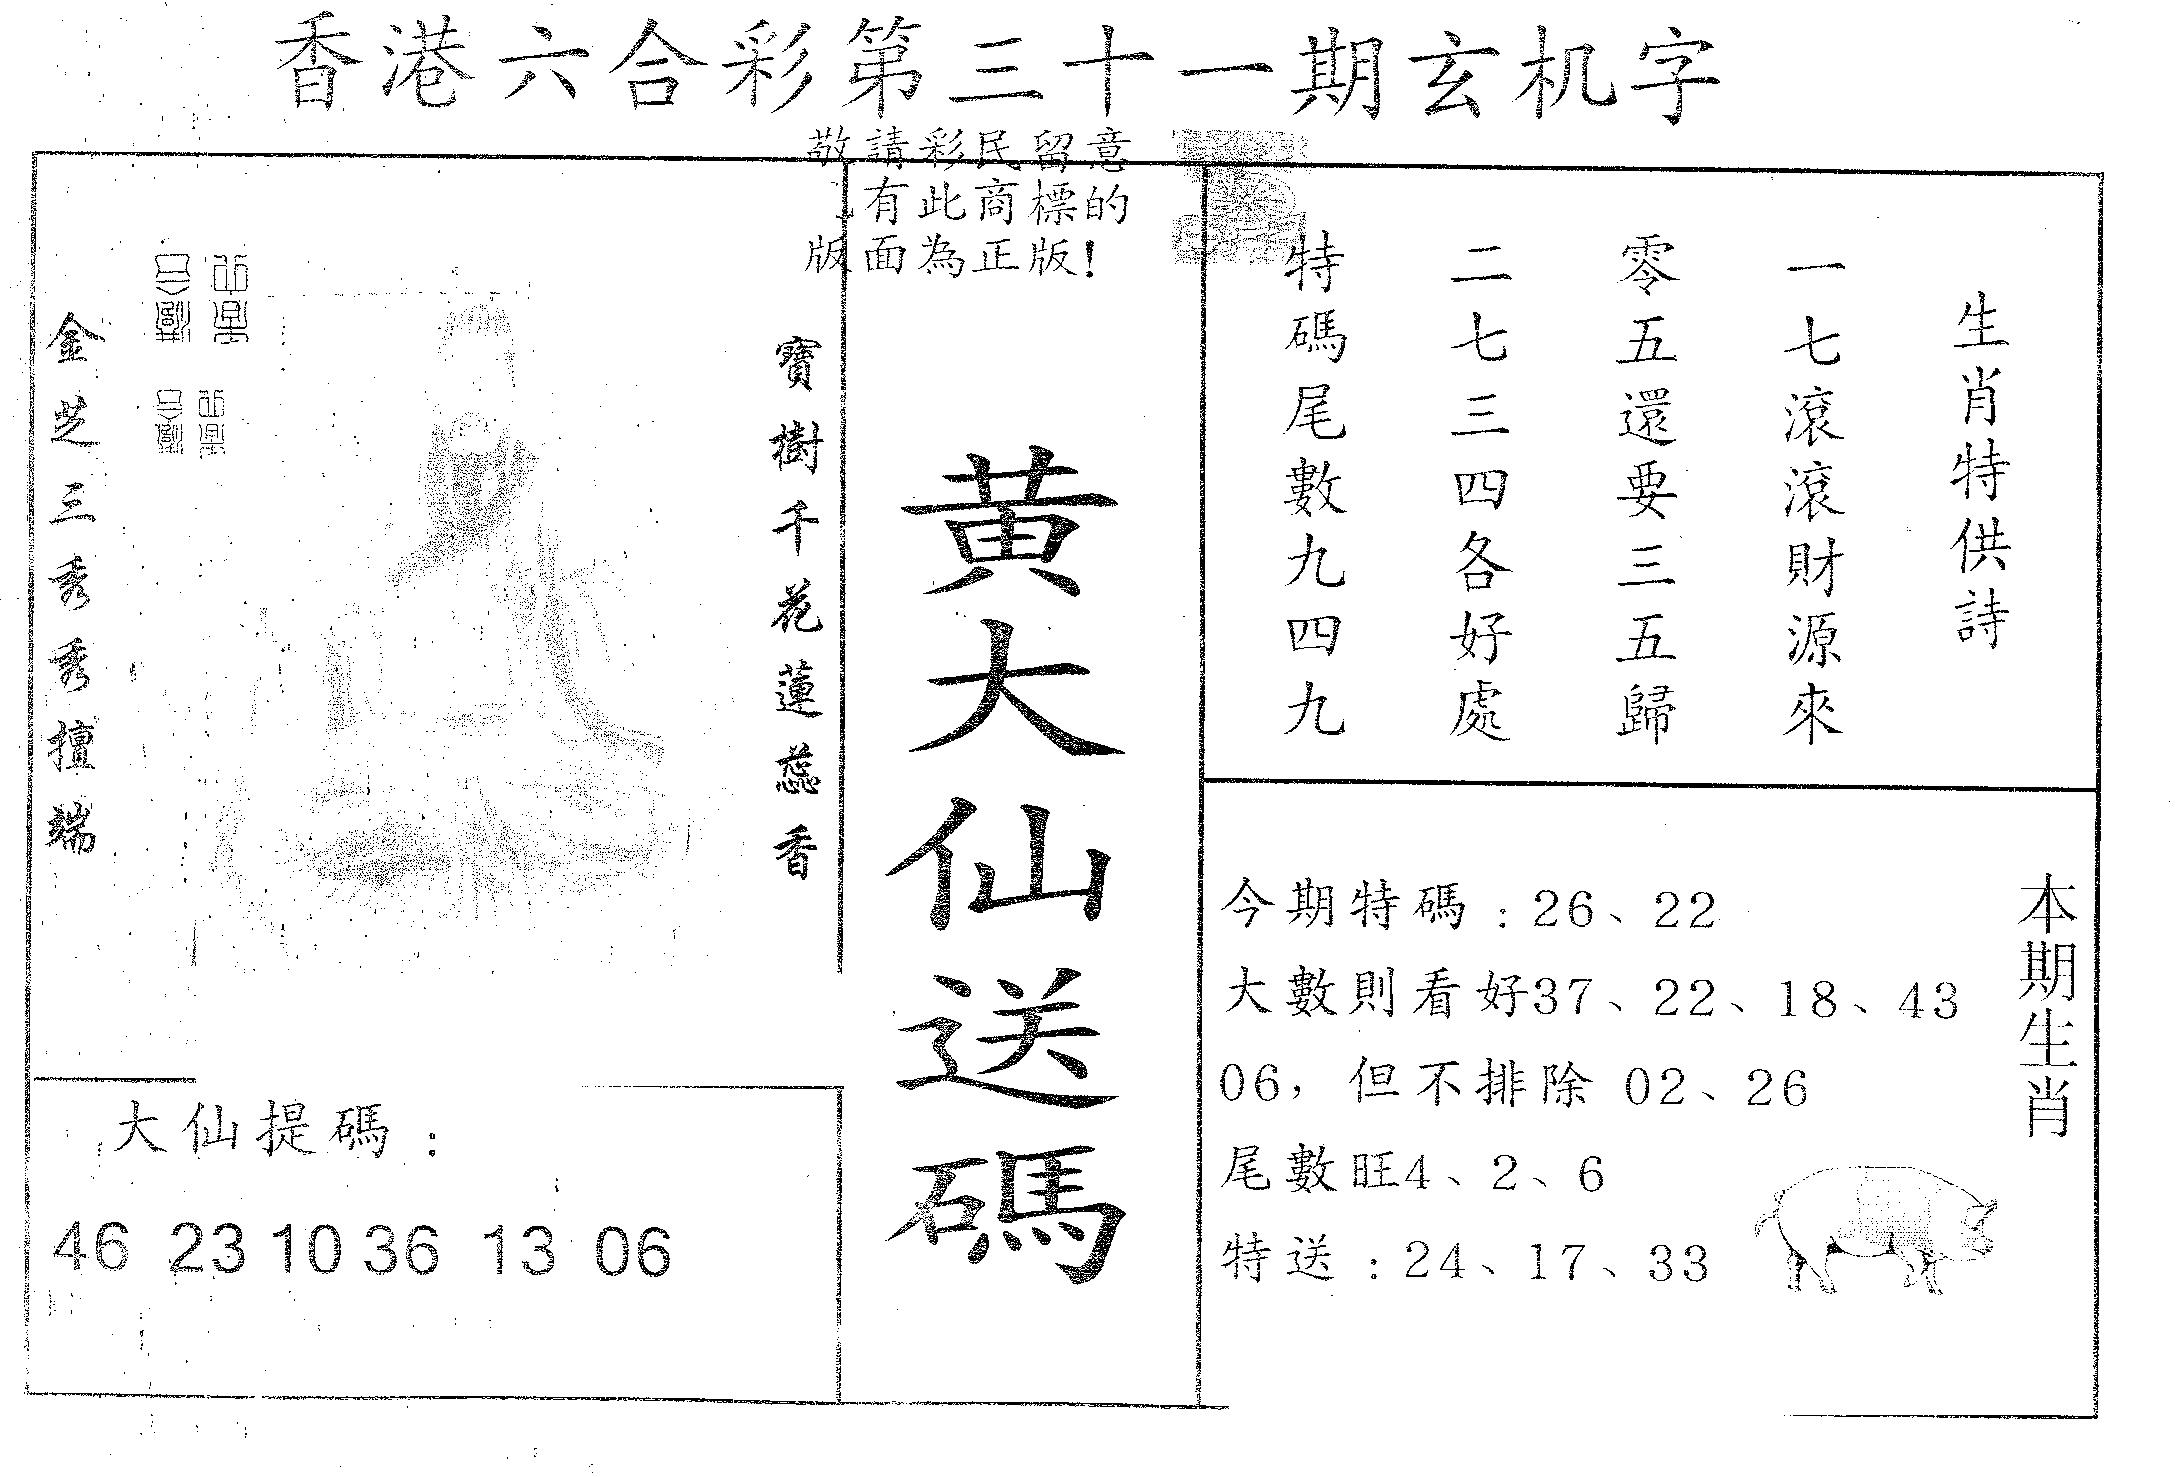 香港六合彩第三十一期玄机字
敬請彩民留意
有此商標的
版面為正版!
生肖特供詩
一七滾滾財源來
零五還要三五歸
二七三四各好處
特碼尾數九四九
黃大仙送碼
寶樹千花蓮蕊香
金芝三秀秀擅端
大仙提碼:
46 23 10 36 13 06
本期生肖
今期特碼:26、22
大數則看好37、22、18、43
06,但不排除 02、26
尾數旺4、2、6
特送:24、17、33